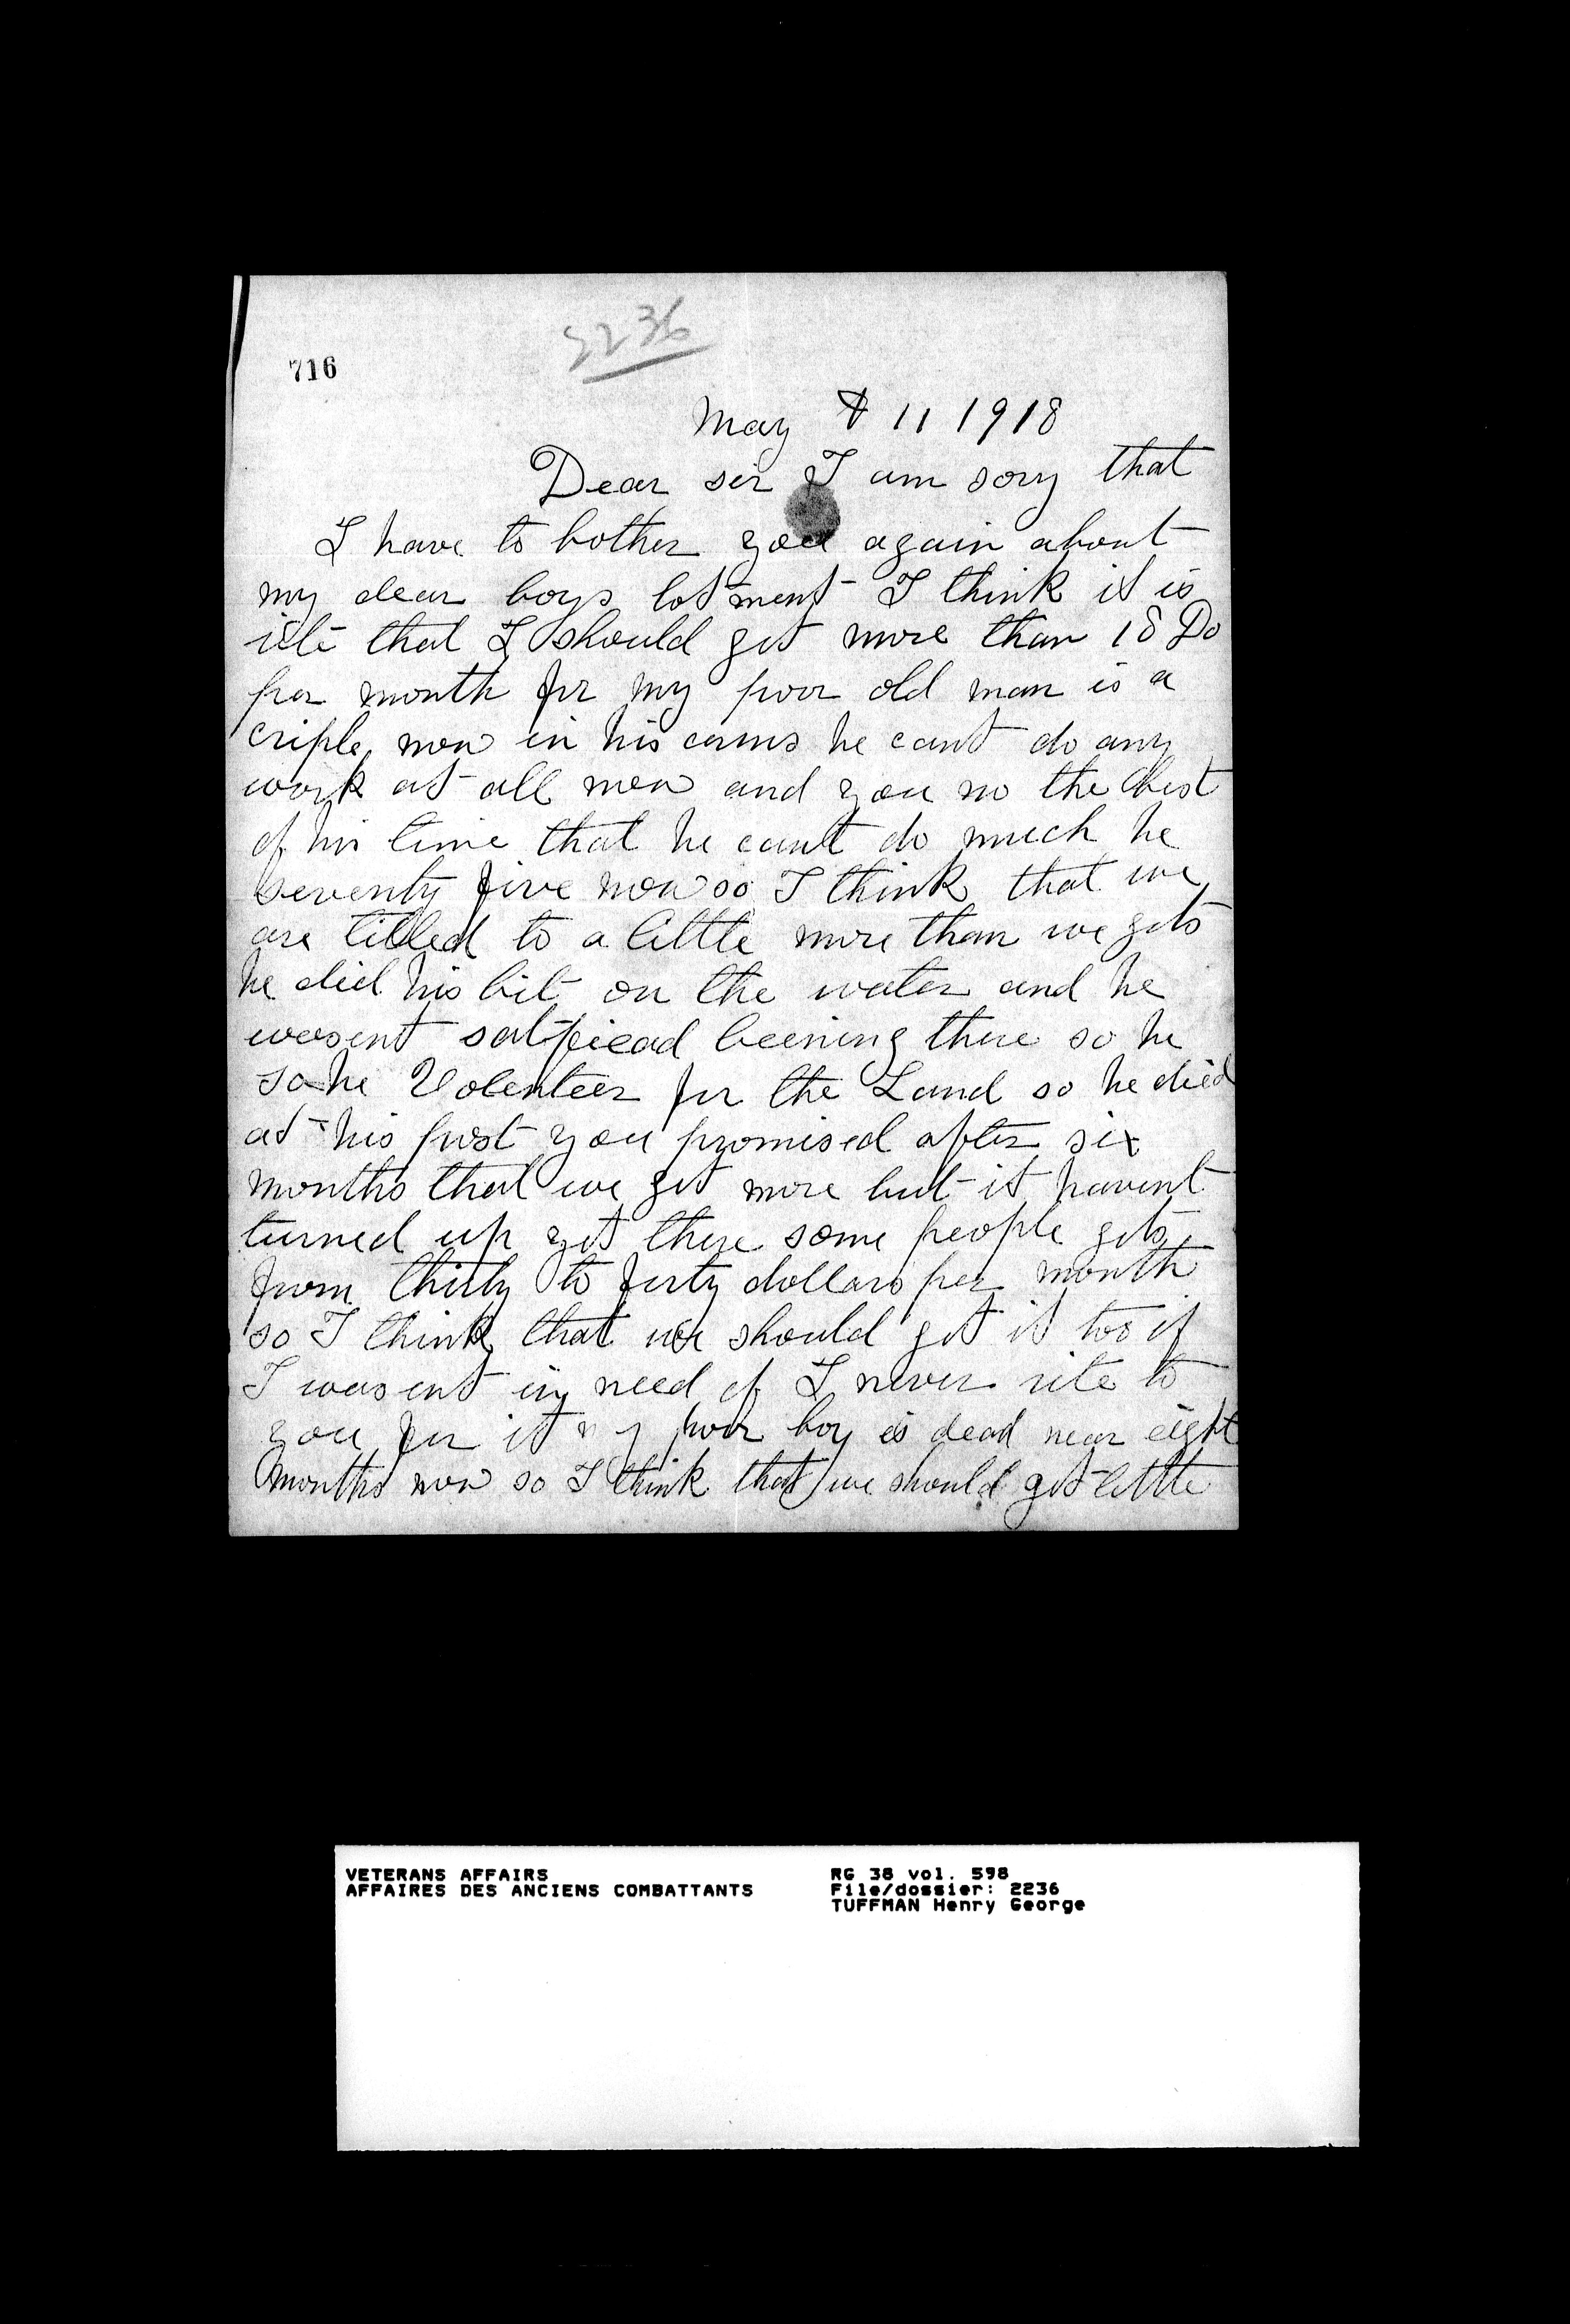 2236
716
May 11 1918
Dear sir I am sory that
I have to bother you again about
my dear boys lotment I think it is
that I should get more than 18 Do
per month for my poor old man is a
criple now in his arms he cant do any
work at all now and you no the best
of his time that he cant do much he
seventy five now so I think that we
are titled to a little more than we gets
he did his bit on the water and he
wasent beening there so he
so he Volenteer for the Land so he died
at his post you promised after six
months that we get more but it havent
turned up yet there some people gets
from thirty to forty dollars per month
so I think that we should get it too if
I wasent in need of I never rite to
you for it my poor boy is dead near eight
months now so I think that we should get little
VETERANS AFFAIRS
AFFAIRES DES ANCIENS COMBATTANTS
RG 38 vol. 598
File/dossier: 2236
TUFFMAN Henry George